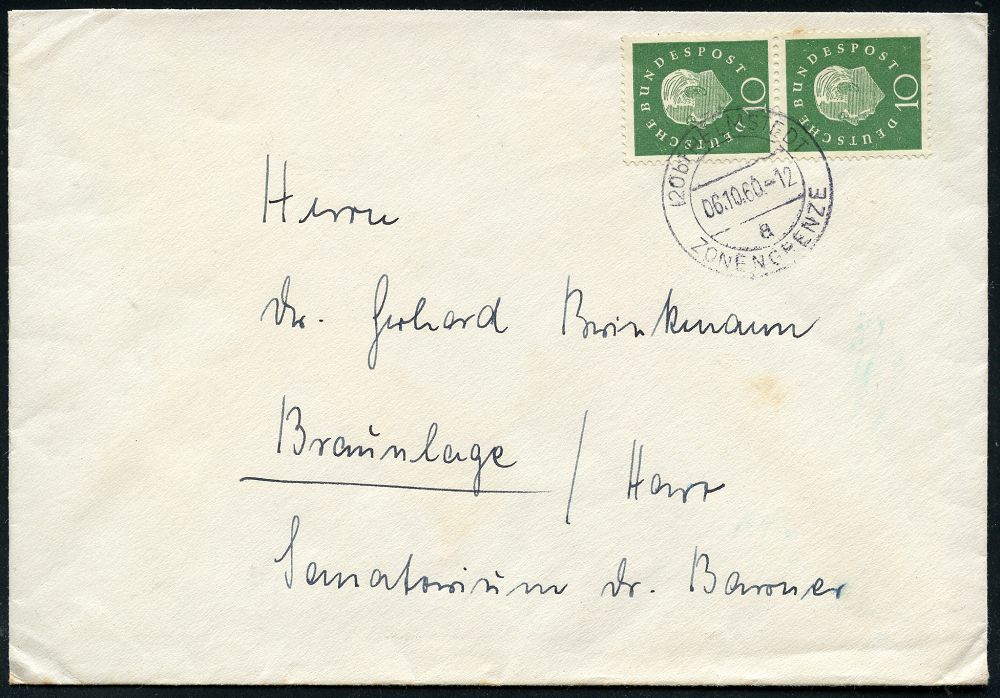 DEUTSCHE BUNDESPOST 10
DEUTSCHE BUNDESPOST 10
(20b) STEDT
06.10.60.-12
a
ZONENGRENZE
Herrn
Dr. Gerhard Brinkmann
Braunlage / Harz
Sanatorium Dr. Barner